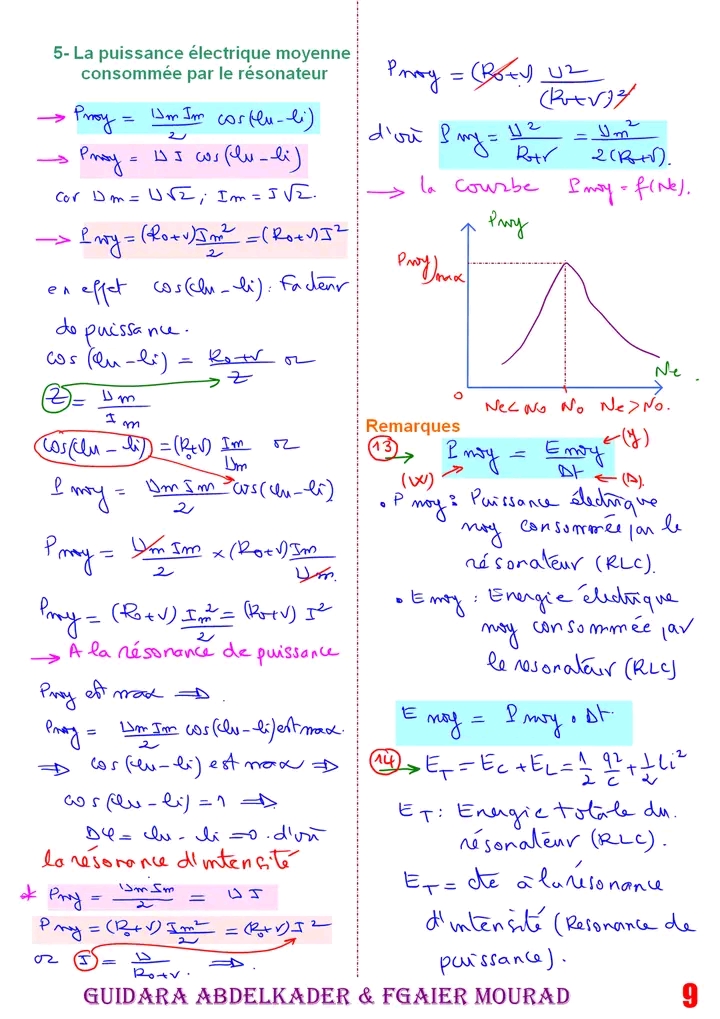 5- La puissance électrique moyenne
consommée par le résonateur
→ Pmoy = Um Im / 2 cos(φu - φi)
→ Pmoy = U I cos(φu - φi)
car Um = U√2 ; Im = I√2.
→ Pmoy = (R0+r) Im² / 2 = (R0+r) I²
en effet cos(φu - φi) : Facteur
de puissance.
cos(φu - φi) = R0+r / Z or
Z = Um / Im
cos(φu - φi) = (R0+r) Im / Um or
Pmoy = Um Im / 2 cos(φu - φi)
Pmoy = Um Im / 2 × (R0+r) Im / Um.
Pmoy = (R0+r) Im² / 2 = (R0+r) I²
→ A la résonance de puissance
Pmoy est max ⇒
Pmoy = Um Im / 2 cos(φu - φi) est max.
⇒ cos(φu - φi) est max ⇒
cos(φu - φi) = 1 ⇒
Δφ = φu - φi = 0 . d'où
la résonance d'intensité
* Pmoy = Um Im / 2 = U I
Pmoy = (R0+r) Im² / 2 = (R0+r) I²
or I = U / R0+r. ⇒
Pmoy = (R0+r) U² / (R0+r)²
d'où Pmoy = U² / R0+r = Um² / 2(R0+r).
→ la courbe Pmoy = f(Ne).
Pmoy
Pmoy)max
Ne
0
Ne < N0 N0 Ne > N0.
Remarques
13 → Pmoy = Emoy / Δt
(J)
(W)
(s).
• Pmoy : Puissance électrique
moy consommée par le
résonateur (RLC).
• Emoy : Energie électrique
moy consommée par
le resonateur (RLC)
Emoy = Pmoy . Δt.
14 → ET = EC + EL = 1/2 q²/c + 1/2 Li²
ET : Energie totale du
résonateur (RLC).
ET = cte à la résonance
d'intensité (Resonance de
puissance).
GUIDARA ABDELKADER & FGAIER MOURAD
9